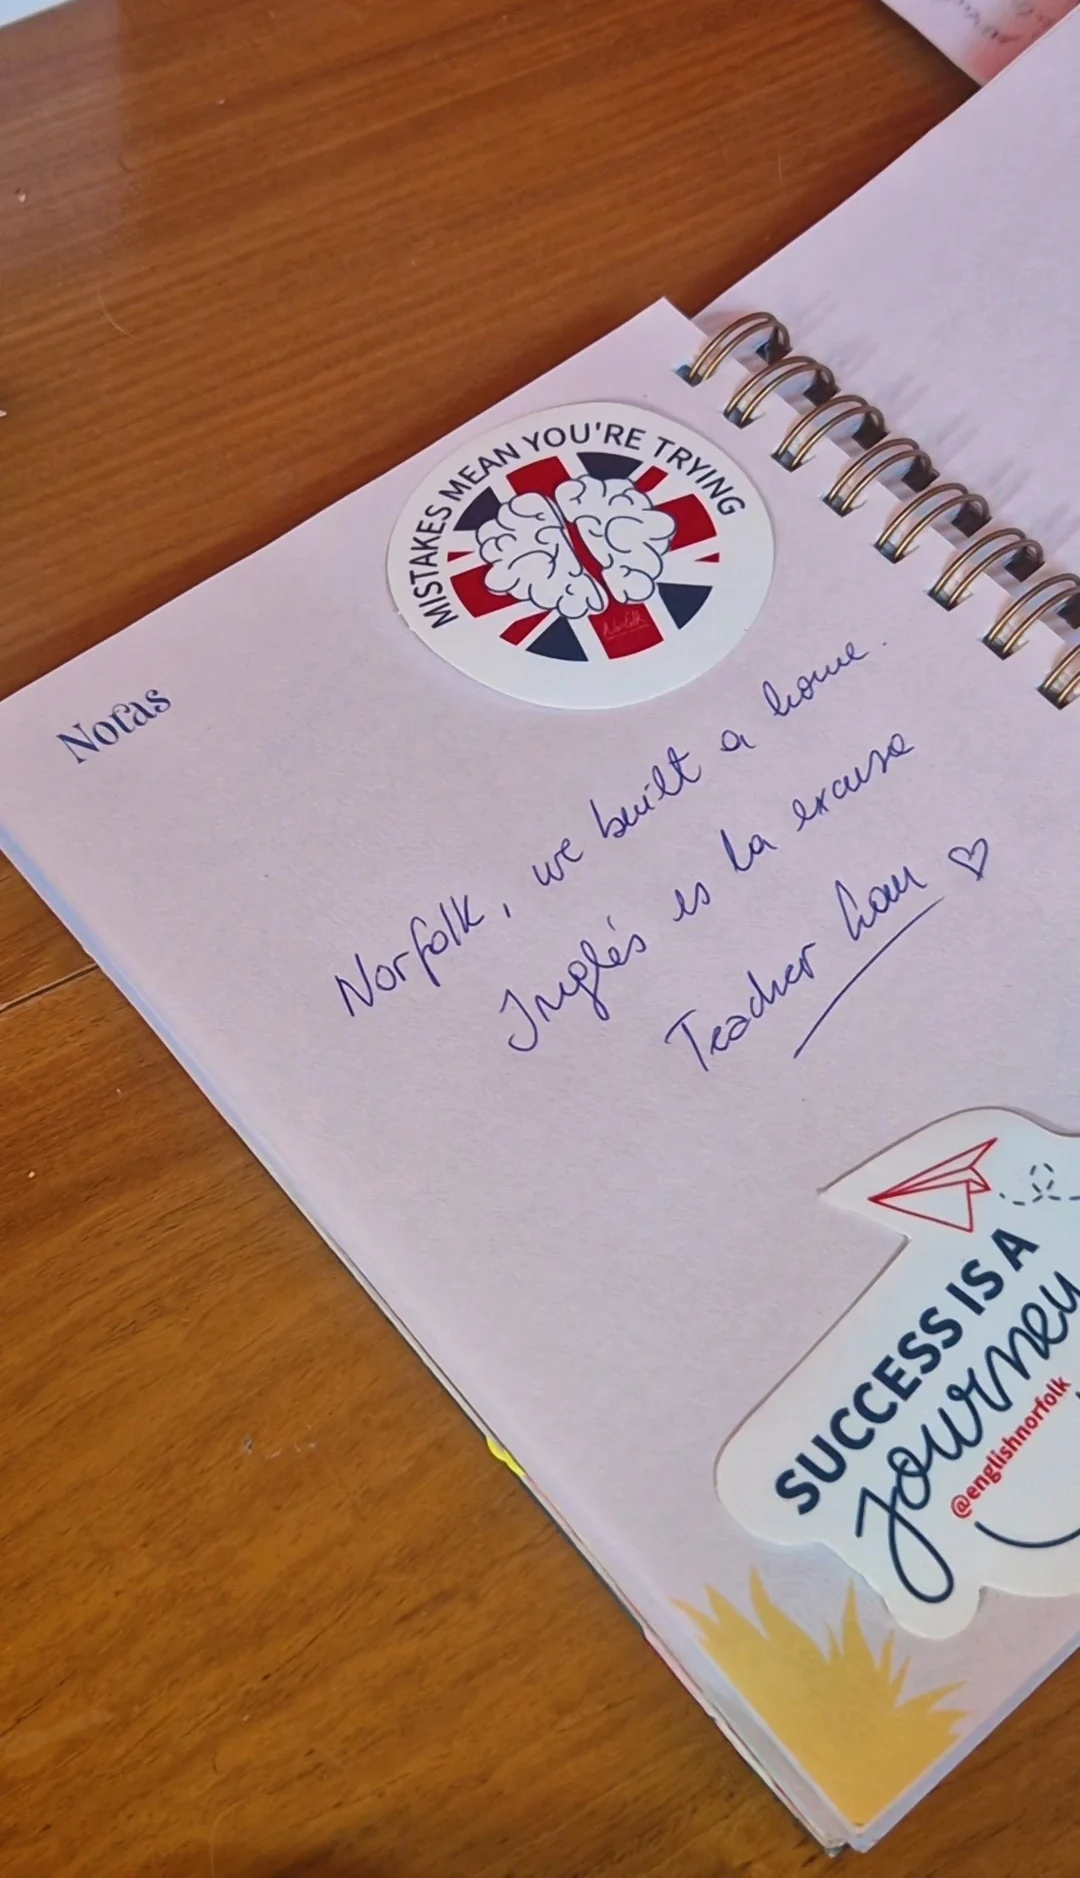 MISTAKES MEAN YOU'RE TRYING
Norfolk
Notas
Norfolk, we built a home.
Inglés es la excusa
Teacher
SUCCESS IS A
journey
@englishnorfolk